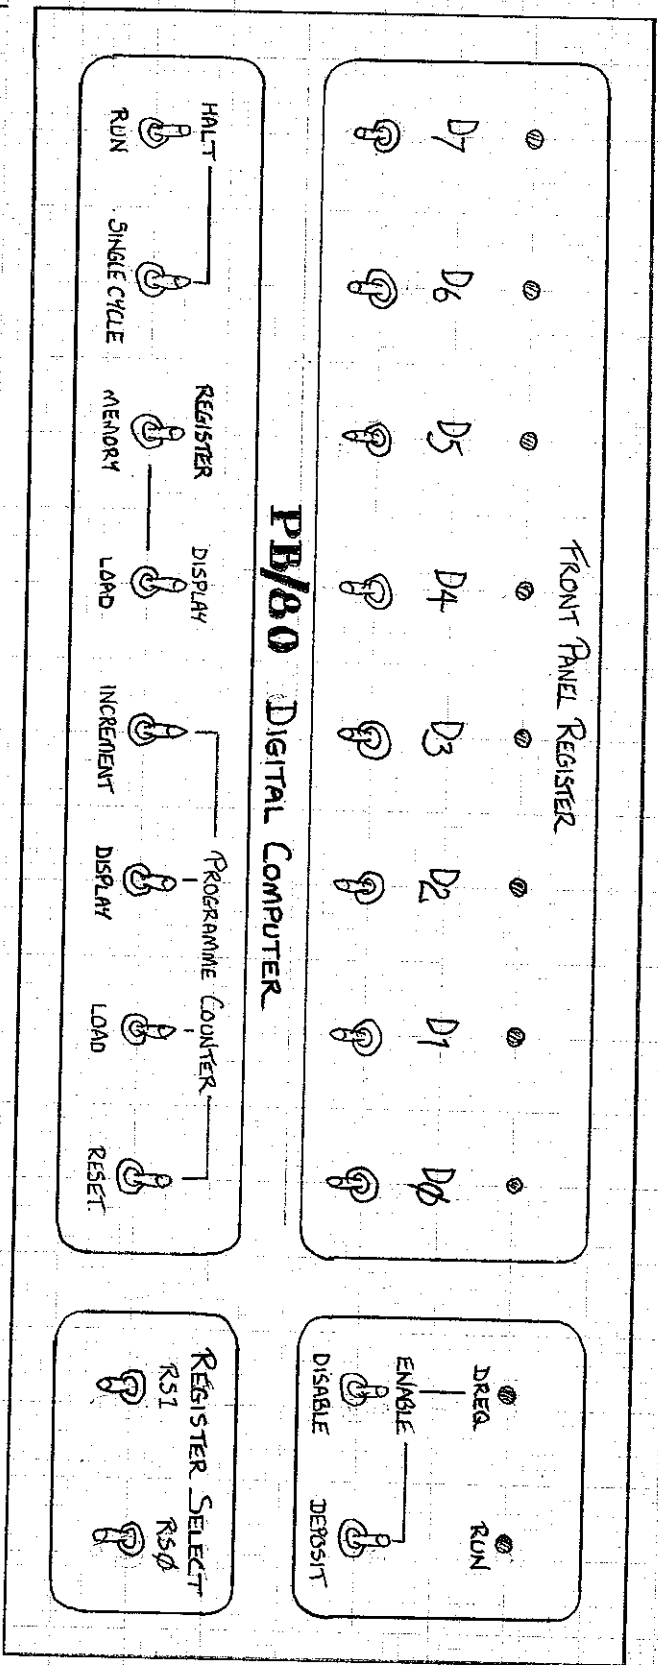 FRONT PANEL REGISTER
D7 D6 D5 D4 D3 D2 D1 DØ
DREQ RUN
ENABLE
DISABLE DEPOSIT
PB/80 DIGITAL COMPUTER
HALT
RUN SINGLE CYCLE
REGISTER DISPLAY
MEMORY LOAD
PROGRAMME COUNTER
INCREMENT DISPLAY LOAD RESET
REGISTER SELECT
RS1 RSØ